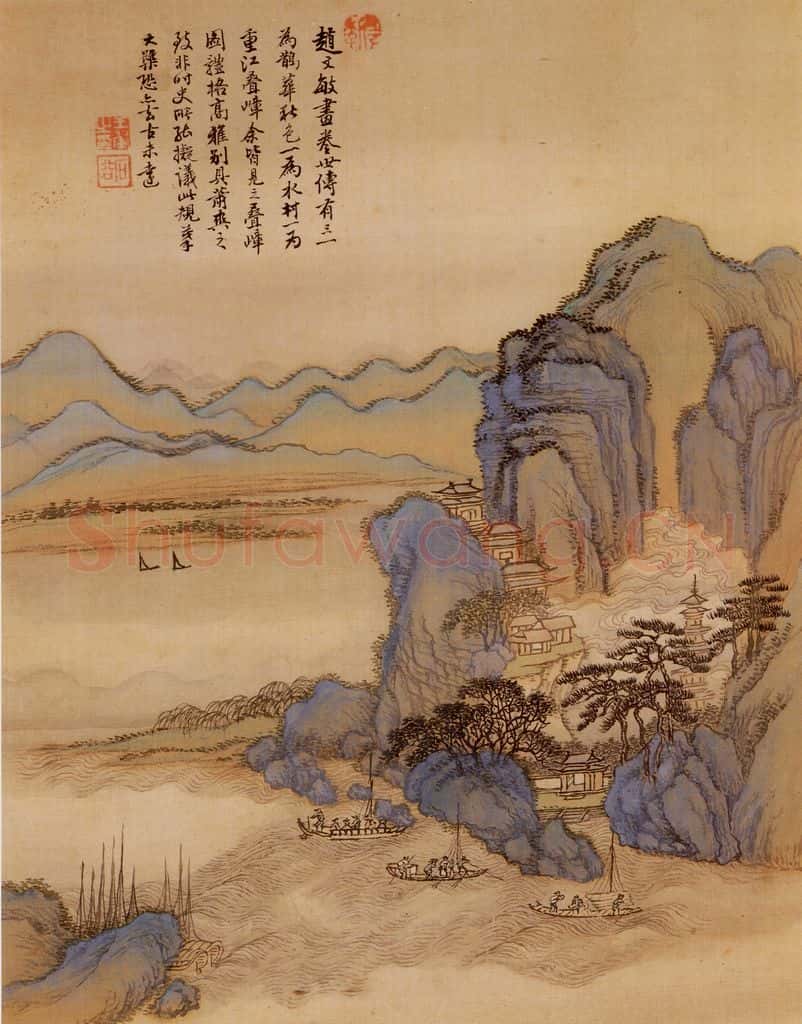 趙文敏畫卷世傳有三一
為鵲華秋色一為水村一为
重江疊嶂余皆見之疊嶂
圖體格高雅別具蕭爽之
致非时史所能擬議此規摹
大槩恐去古未
Shufawang.CN